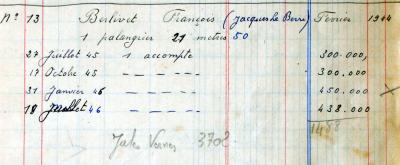 N° 13 Berlivet François (Jacques Le Berre) Février 1944
1 palangrier 21 metres 50
27 Juillet 45 1 accompte 300.000,
17 Octobre 45 — — — — — 300.000
31 Janvier 46 — — — — — 450.000
18 Juillet 46 — — — — — 438.000
1488
Jules Vernes 3702